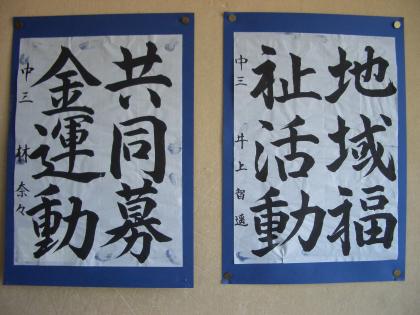 地域福
祉活動
中三 井上智遥
共同募
金運動
中三 林奈々